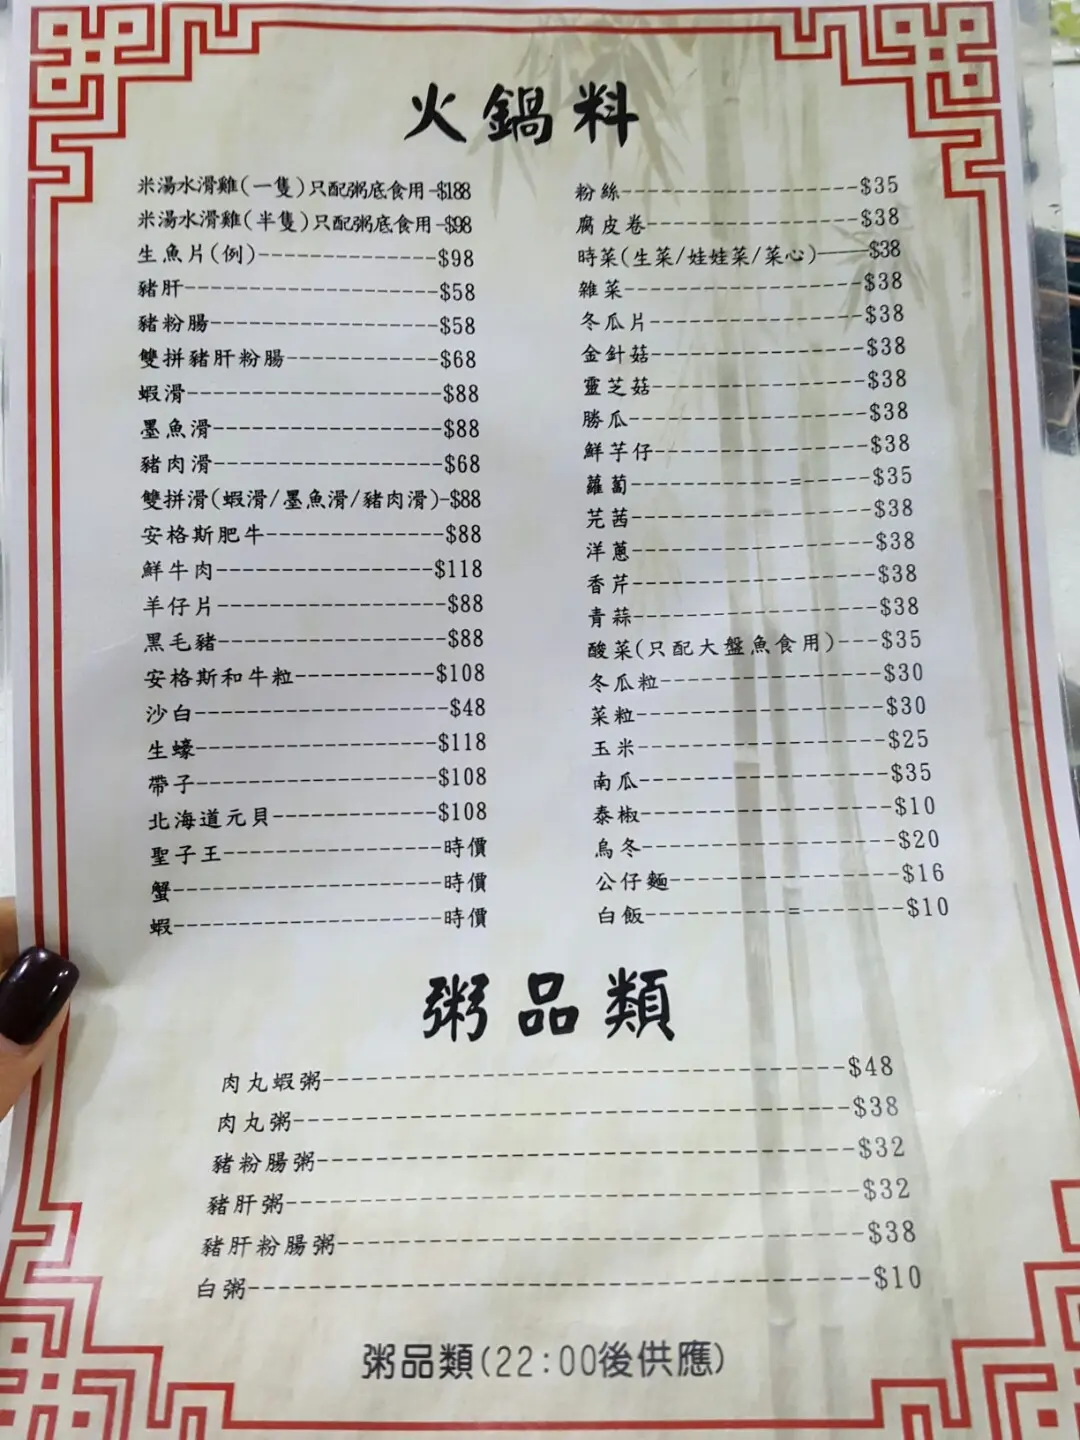 火鍋料
米湯水滑雞(一隻)只配粥底食用-$188
米湯水滑雞(半隻)只配粥底食用-$98
生魚片(例)--------------$98
豬肝--------------------$58
豬粉腸------------------$58
雙拼豬肝粉腸------------$68
蝦滑--------------------$88
墨魚滑------------------$88
豬肉滑------------------$68
雙拼滑(蝦滑/墨魚滑/豬肉滑)-$88
安格斯肥牛--------------$88
鮮牛肉-----------------$118
羊仔片------------------$88
黑毛豬------------------$88
安格斯和牛粒-----------$108
沙白--------------------$48
生蠔-------------------$118
帶子-------------------$108
北海道元貝-------------$108
聖子王-----------------時價
蟹---------------------時價
蝦---------------------時價
粉絲-------------------$35
腐皮卷-----------------$38
時菜(生菜/娃娃菜/菜心)----$38
雜菜-------------------$38
冬瓜片-----------------$38
金針菇-----------------$38
靈芝菇-----------------$38
勝瓜-------------------$38
鮮芋仔-----------------$38
蘿蔔-------------=-----$35
芫茜-------------------$38
洋蔥-------------------$38
香芹-------------------$38
青蒜-------------------$38
酸菜(只配大盤魚食用)---$35
冬瓜粒-----------------$30
菜粒-------------------$30
玉米-------------------$25
南瓜-------------------$35
泰椒-------------------$10
烏冬-------------------$20
公仔麵-----------------$16
白飯-----------=-------$10
粥品類
肉丸蝦粥----------------------------------------$48
肉丸粥------------------------------------------$38
豬粉腸粥----------------------------------------$32
豬肝粥------------------------------------------$32
豬肝粉腸粥--------------------------------------$38
白粥--------------------------------------------$10
粥品類(22:00後供應)